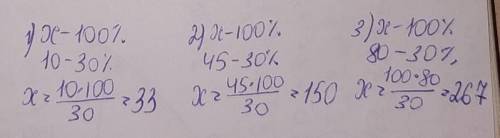 1) x-100%.
10-30%
x = 10·100/30 = 33
2) x-100%.
45-30%
x = 45·100/30 = 150
3) x-100%
80-30%,
x = 100·80/30 = 267